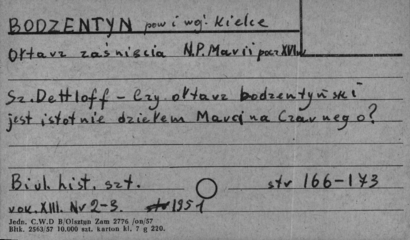 BODZENTYN pow i woj. Kielce
Ołtarz zaśnięcia N.P.Marii pocz XVI w
Sz. Dettloff - Czy ołtarz bodzentyński
jest istotnie dziełem Marcina Czarnego?
Biul. hist. szt. str 166-173
rok. XIII. Nr 2-3. 1951
Jedn. C.W.D B/Olsztyn Zam 2776 /on/57
Bltk. 2563/57 10.000 szt. karton kl. 7 g 220.